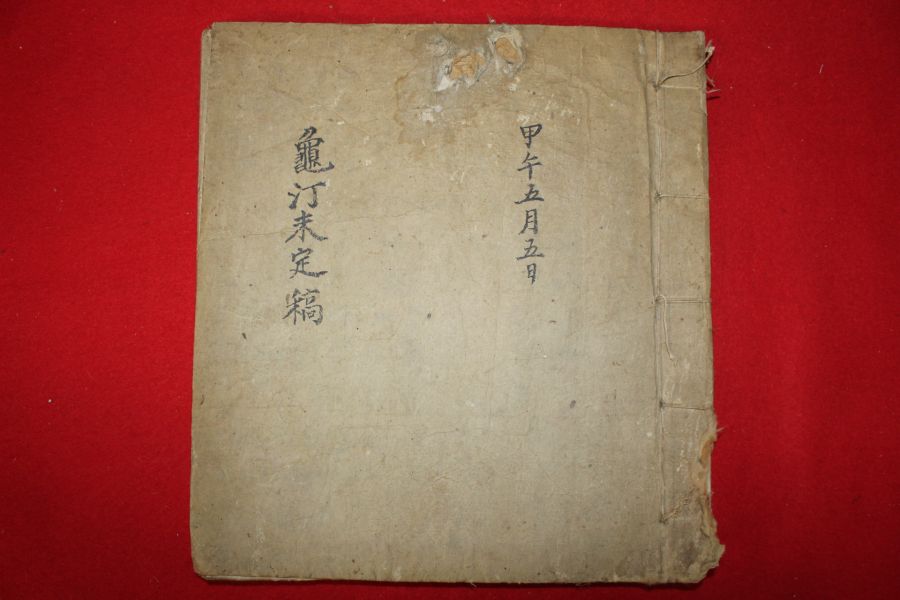 甲午五月五日
龜汀未定稿